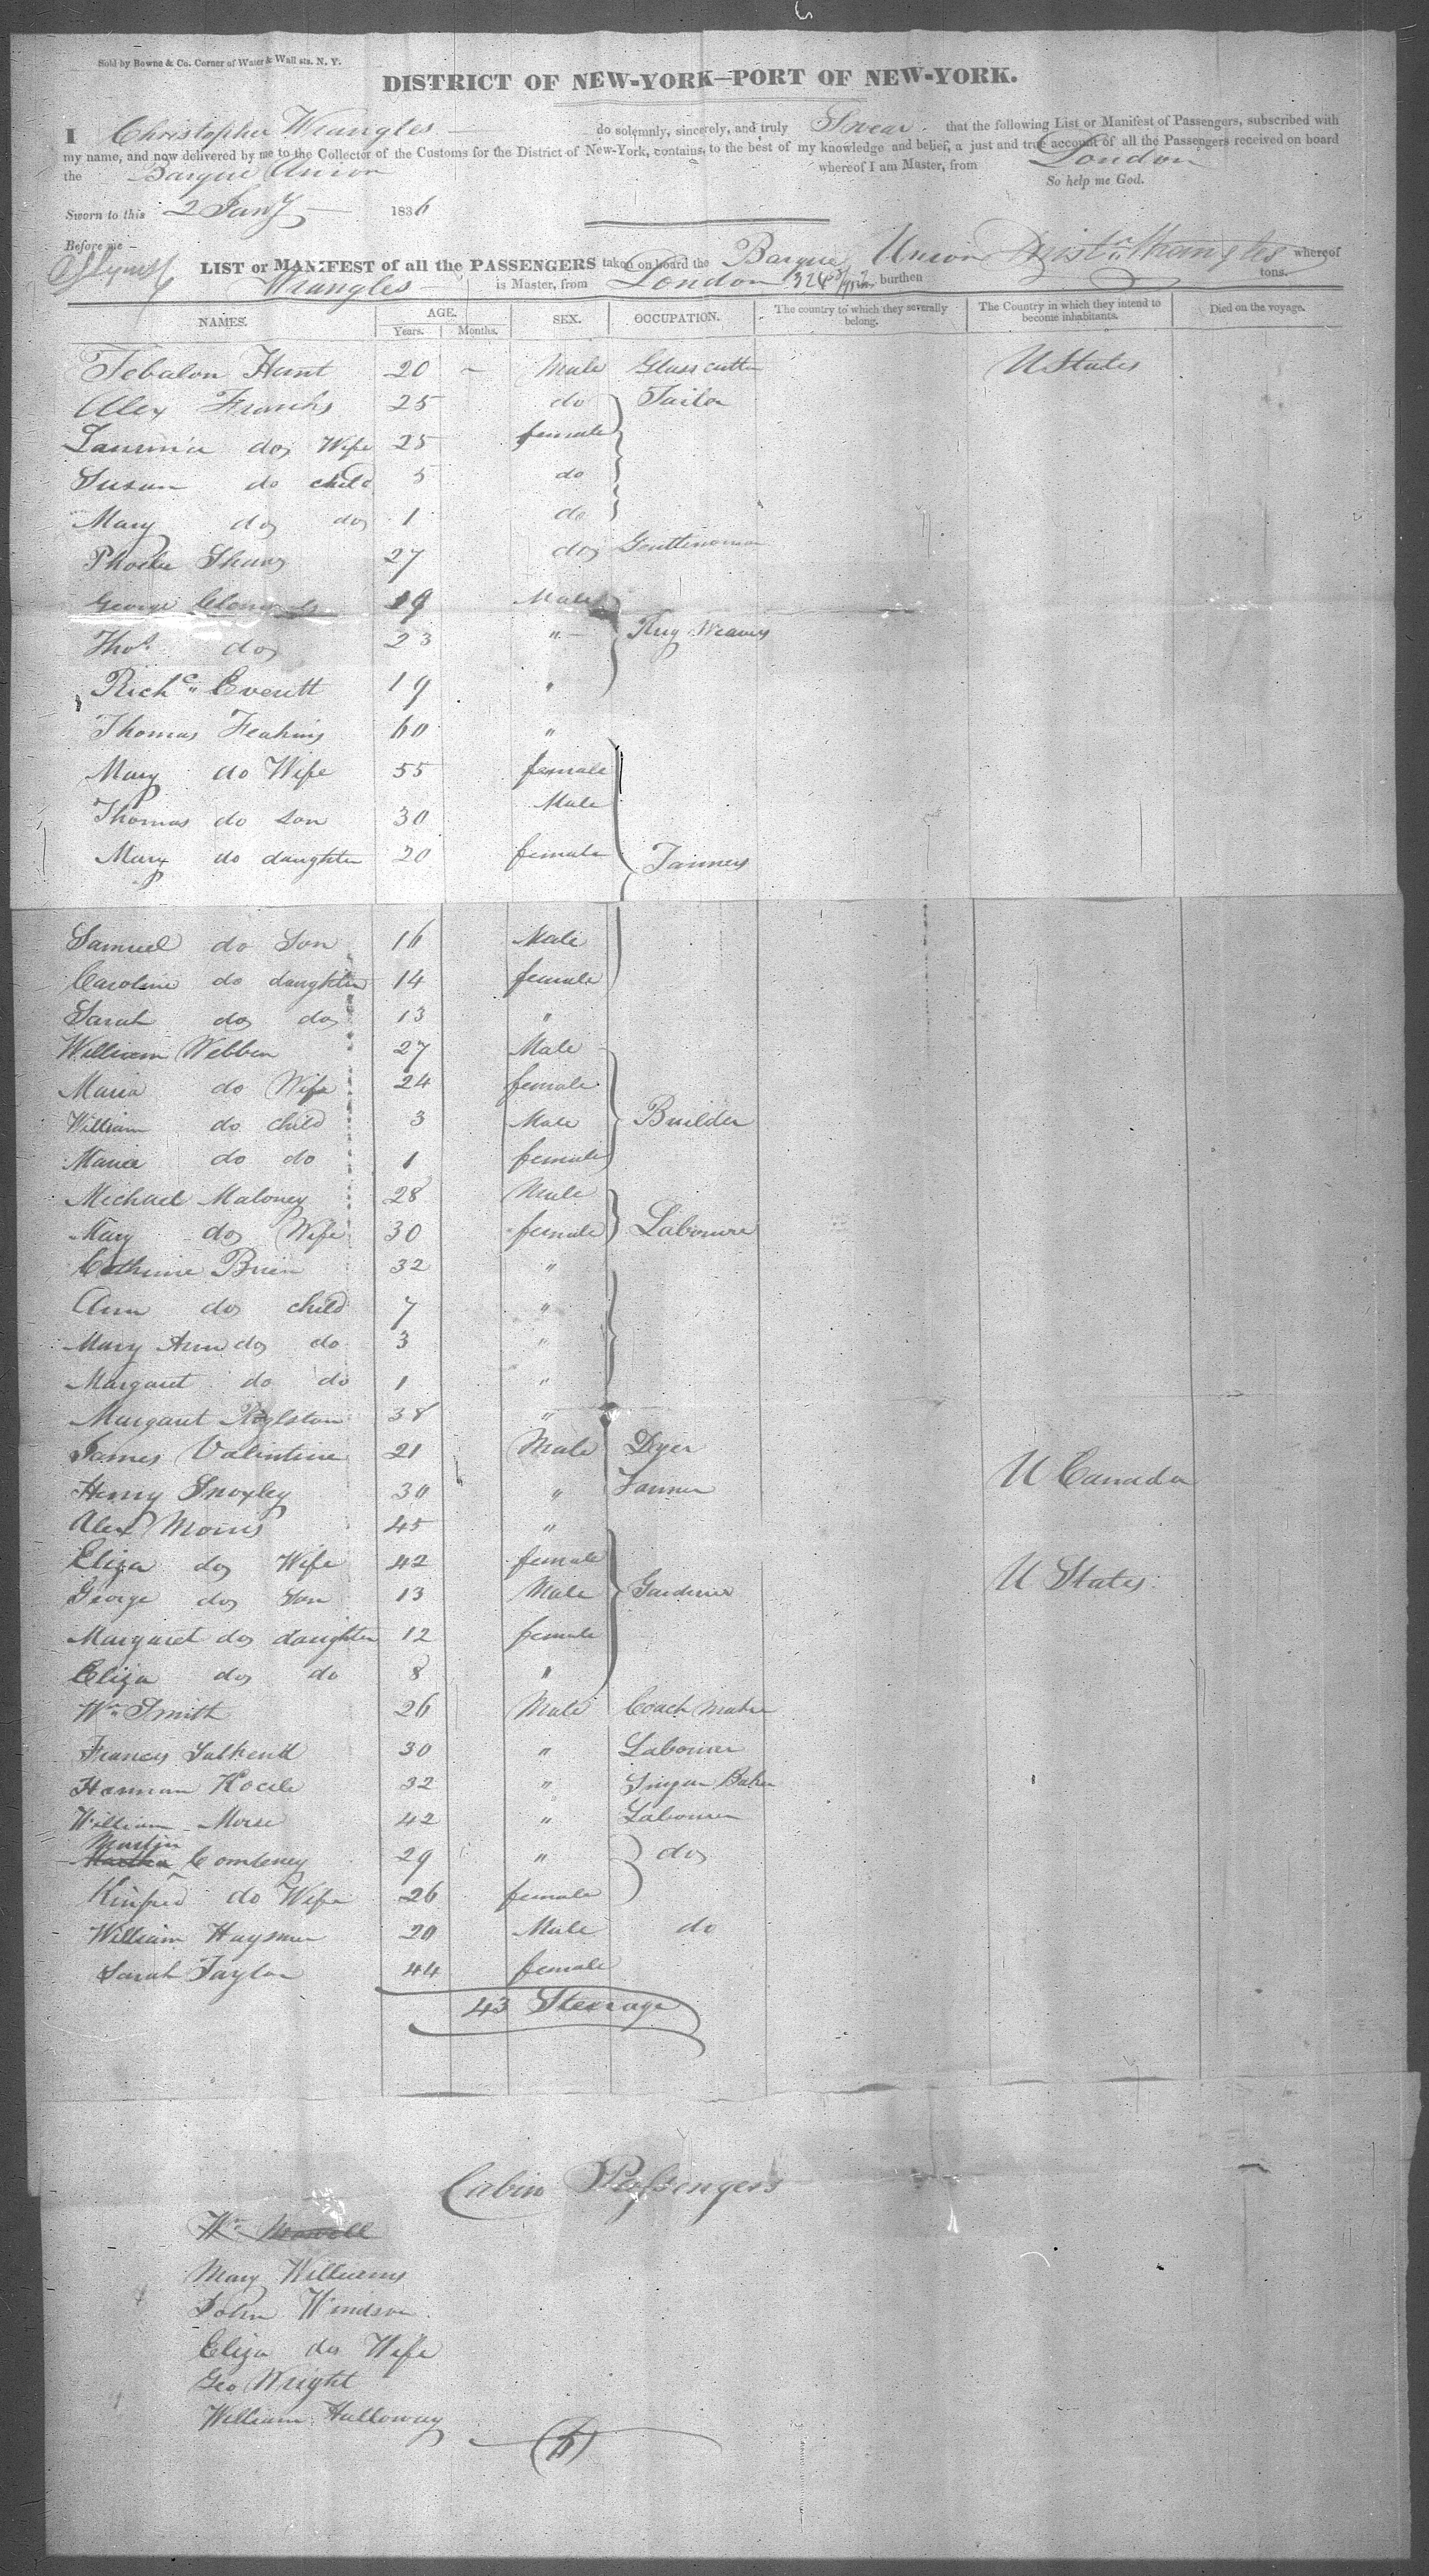 Sold by Bowne & Co. Corner of Water & Wall sts. N. Y.
DISTRICT OF NEW-YORK—PORT OF NEW-YORK.
I Christopher Wrangles do solemnly, sincerely, and truly Swear that the following List or Manifest of Passengers, subscribed with
my name, and now delivered by me to the Collector of the Customs for the District of New-York, contains, to the best of my knowledge and belief, a just and true account of all the Passengers received on board
the Barque Union whereof I am Master, from London
So help me God.
Sworn to this 2 Jany 1836
Before me
LIST or MANIFEST of all the PASSENGERS taken on board the Barque Union whereof
Wrangles is Master, from London burthen tons.
NAMES. AGE. Years. Months. SEX. OCCUPATION. The country to which they severally belong. The Country in which they intend to become inhabitants. Died on the voyage.
Hunt 20 Male Glass cutter U States
Alex 25 do Tailor
do Wife 25 female
Susan do child 5 do
Mary do do 1 do
Phoebe 27 do
George 19 Male
Thos do 23 " Rug Weavers
Richd Everett 19 "
Thomas Feakins 60 "
Mary do Wife 55 female
Thomas do son 30 Male
Mary do daughter 20 female
Samuel do Son 16 Male
Caroline do daughter 14 female
Sarah do do 13 "
William Webben 27 Male
Maria do Wife 24 female
William do child 3 Male Builder
Maria do do 1 female
Michael Maloney 28 Male
Mary do Wife 30 female Labourer
Catherine Brien 32 "
Ann do child 7 "
Mary Ann do do 3 "
Margaret do do 1 "
Margaret 38 "
James Valintine 21 Male Dyer
Henry Snoxley 30 " U Canada
Alex Morris 45 "
Eliza do Wife 42 female U States
George do Son 13 Male Gardener
Margaret do daughter 12 female
Eliza do do 8 "
Wm Smith 26 Male Coach maker
Francis 30 " Labourer
Herman 32 " Baker
William Morse 42 " Labourer
Martin
29 " do
do Wife 26 female
William Haysmer 20 Male do
Sarah Taylor 44 female
43 Steerage
Cabin Passengers
Wm
Mary Williams
John Windsor
Eliza do Wife
Geo Wright
William Halloway